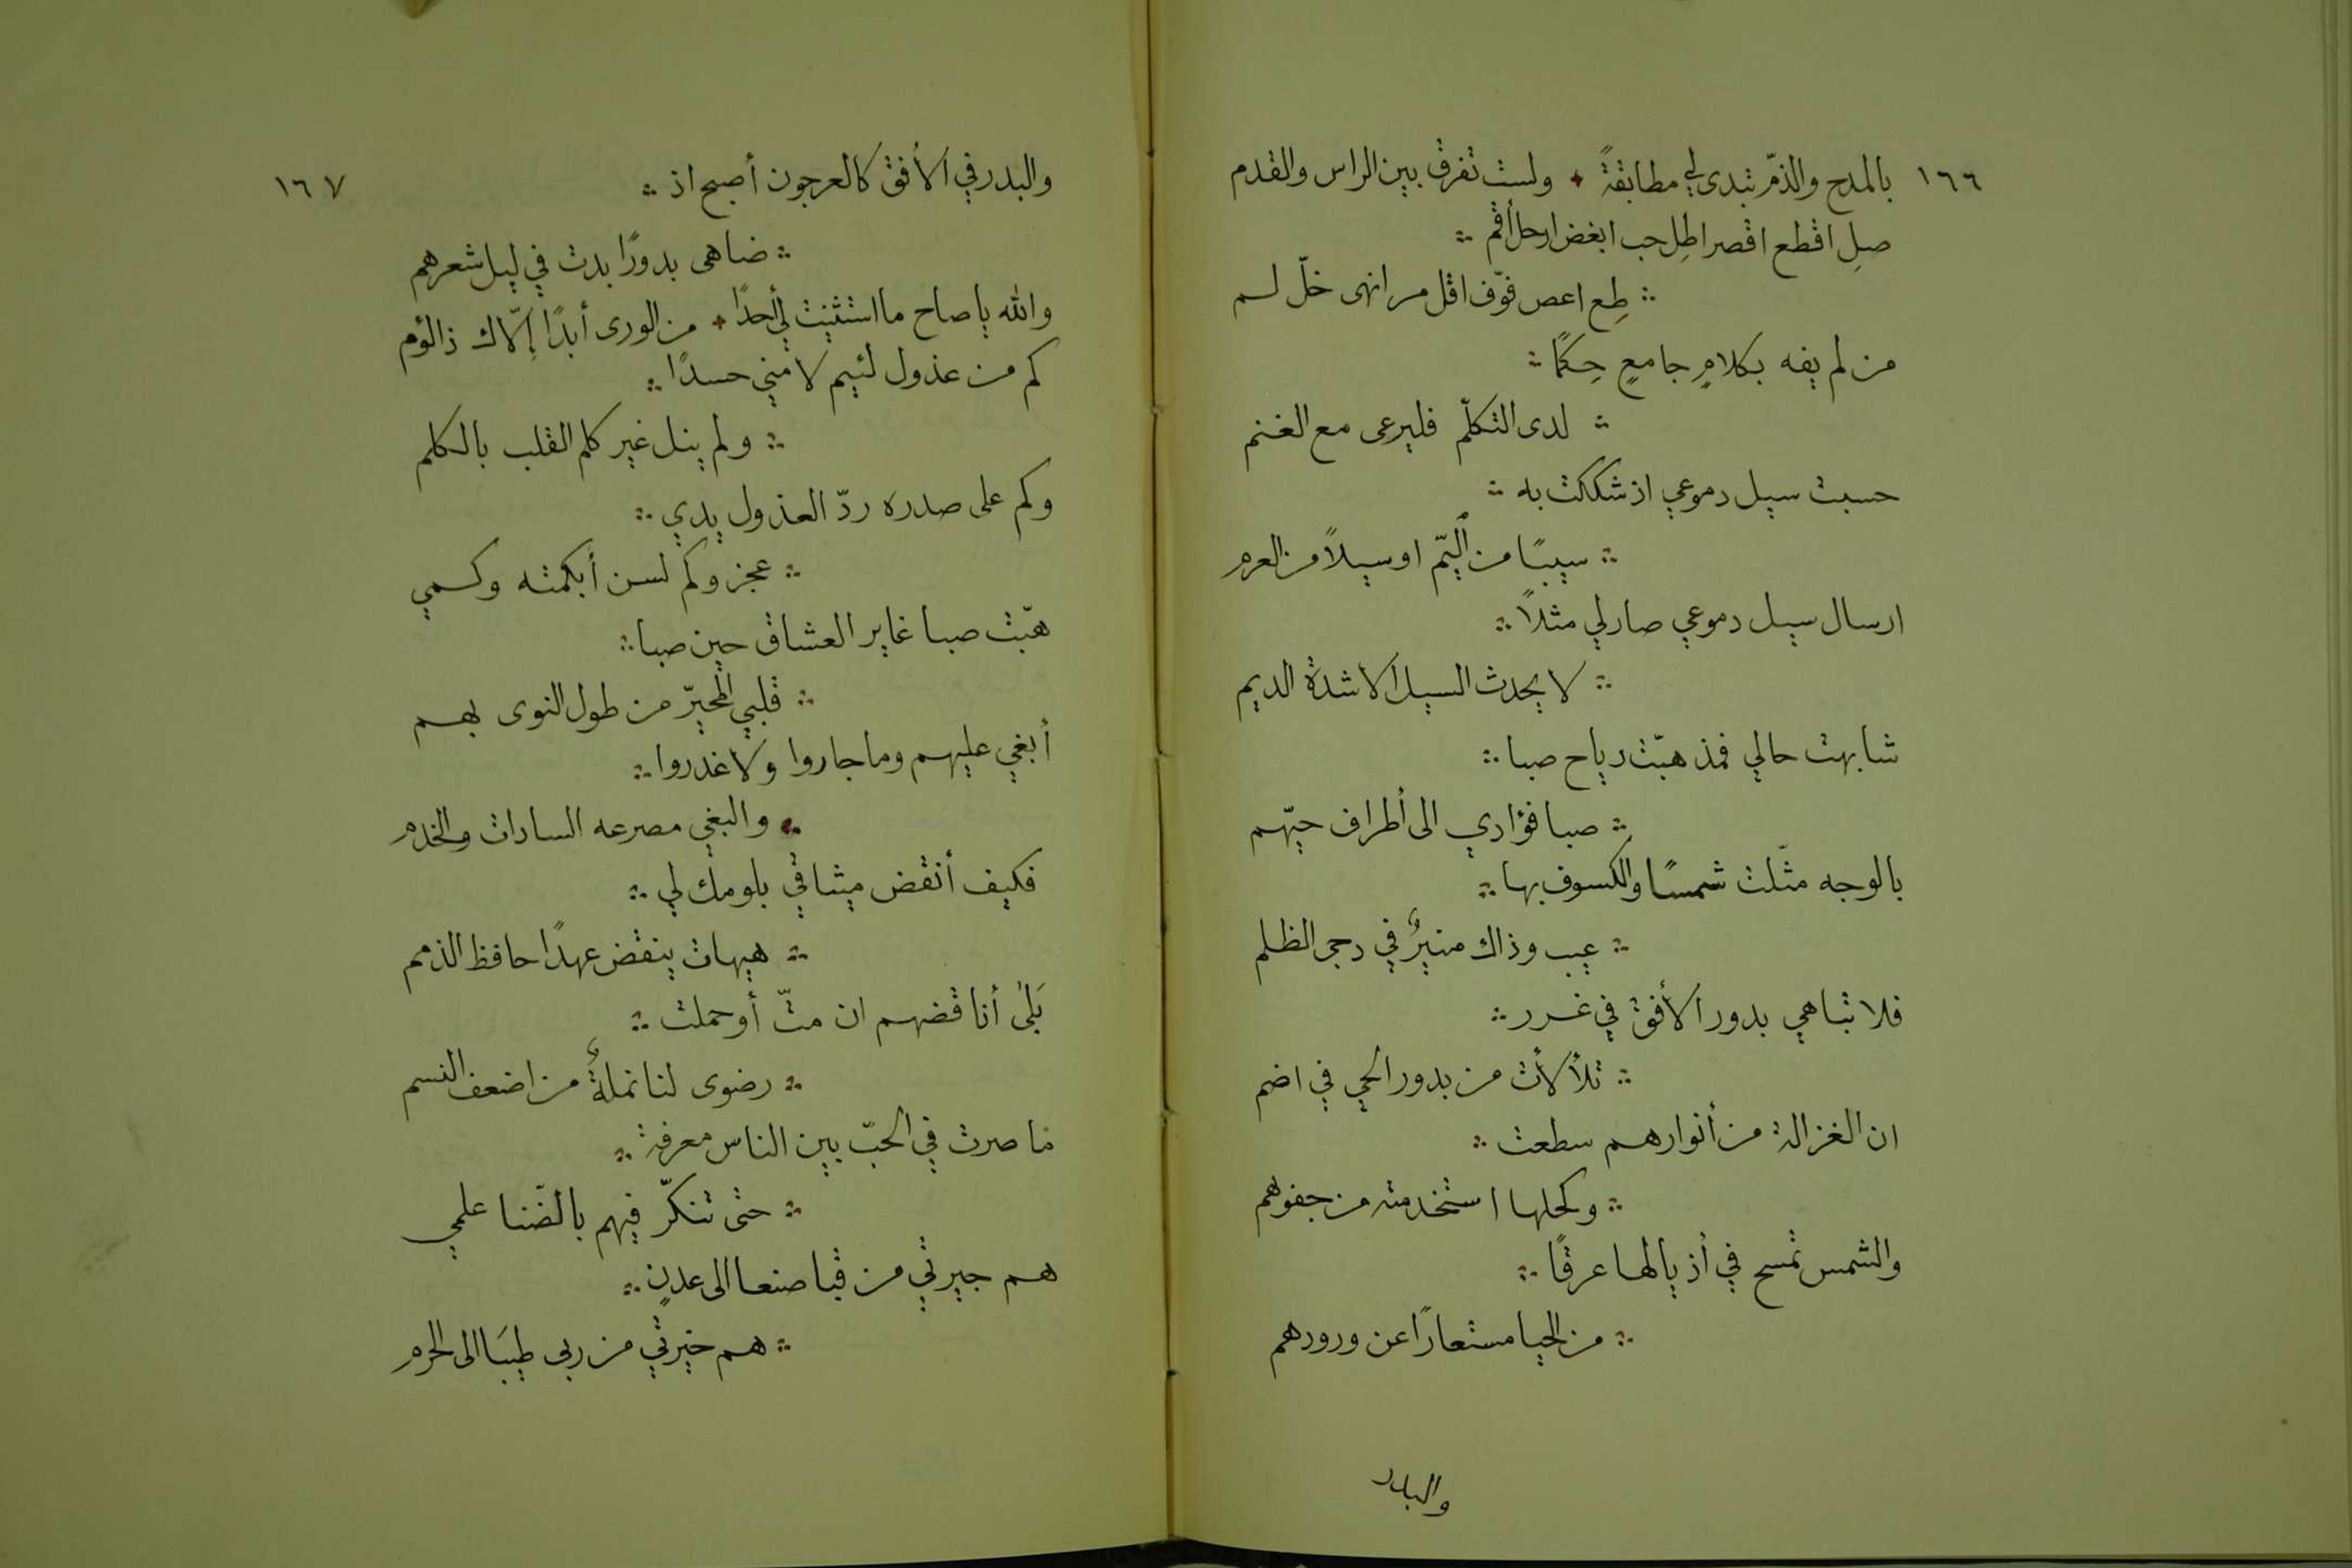 ١٦٦
بالمدح والذمّ تبدى لي مطابقةً ٭ ولست تفرق بين الراس والقدم
صِلِ اقطع اقصر اطِل حب ابغض ارحل أقم ∴
∴ طِع اعص فوّف اقل مر انهى خلّ لسم
من لم يفه بكلامٍ جامعٍ حِكمًا ∴
∴ لدى التكلّم فليرعى مع الغنم
حسبت سيل دموعي اذ شككت به ∴
∴ سيبًا من اليمّ او سيلاً من العرم
ارسال سيل دموعي صار لي مثلاً ∴
∴ لا يحدث السيل الا شدة الديم
شابهت حالي فمذ هبّت رياح صبا ∴
∴ صبا فؤادي الى أطراف حيّهم
بالوجه مثّلت شمسًا والكسوف بها ∴
∴ عيب وذاك منيرٌ في دجى الظلم
فلا تباهي بدور الأفق في غرر ∴
∴ تلألأت من بدور الحي في اضم
ان الغزالة من أنوارهم سطعت ∴
∴ وكحلها استخدمته من جفوهم
والشمس تمسح في أذيالها عرقًا ∴
∴ من الحيا مستعارًا عن ورودهم
والبدر
١٦٧
والبدر في الأفق كالعرجون أصبح اذ ∴
∴ ضاهى بدورًا بدت في ليل شعرهم
والله يا صاح ما استثنيت لي أحدًا ٭ من الورى أبدًا إلّاك ذا لؤم
كم من عذول لئيم لامني حسدًا ∴
∴ ولم ينل غير كلم القلب بالكلم
وكم على صدره ردّ العذول يدي ∴
∴ عجز وكم لسن أبكمته وكمي
هبّت صبا غاير العشاق حين صبا ∴
∴ قلبي المحيّر من طول النوى بهم
أبغي عليهم وما جاروا ولا غدروا ∴
∴ والبغي مصرعه السادات والخدم
فكيف أنقض ميثاقي بلومك لي ∴
∴ هيهات ينقض عهدًا حافظ الذمم
بَلى أناقضهم ان متّ أو حملت ∴
∴ رضوى لنا نملةٌ من اضعف النسم
ما صرت في الحبّ بين الناس معرفة ∴
∴ حتى تنكّر فيهم بالضّنا علمي
هم جيرتي من قبا صنعا الى عدنٍ ∴
∴ هم خيرتي من ربى طيبَا الى الحرم